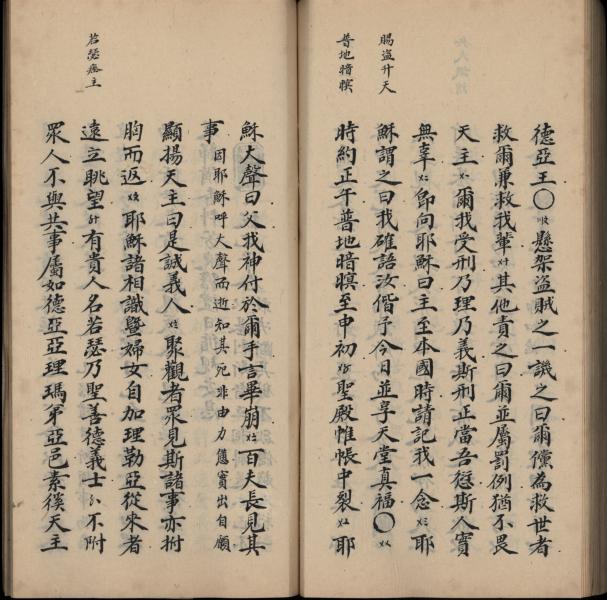 德亞王〇懸架盜賊之一譏之曰爾儻為救世者
救爾兼救我輩其他責之曰爾並屬罰例猶不畏
天主爾我受刑乃理乃義斯刑正當吾愆斯人實
無辜卽向耶穌曰主至本國時請記我一念耶
賜盜升天
穌謂之曰我確語汝偕予今日並享天堂真福〇
普地暗暝
時約正午普地暗暝至申初聖殿帷帳中裂耶
穌大聲曰父我神付於爾手言畢崩百夫長見其
事因耶穌呼大聲而逝知其死非由力憊實出自願
顯揚天主曰是誠義人聚觀者眾見斯諸事亦拊
胸而返耶穌諸相識曁婦女自加理勒亞從來者
若瑟瘞主
遠立眺望有貴人名若瑟乃聖善德義士不附
眾人不與共事屬如德亞亞理瑪弟亞邑素徯天主